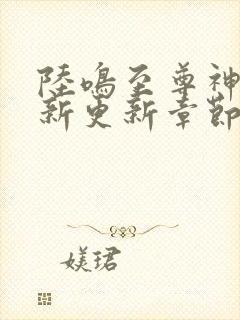 陸鳴至尊神
新更新章節
媄珺